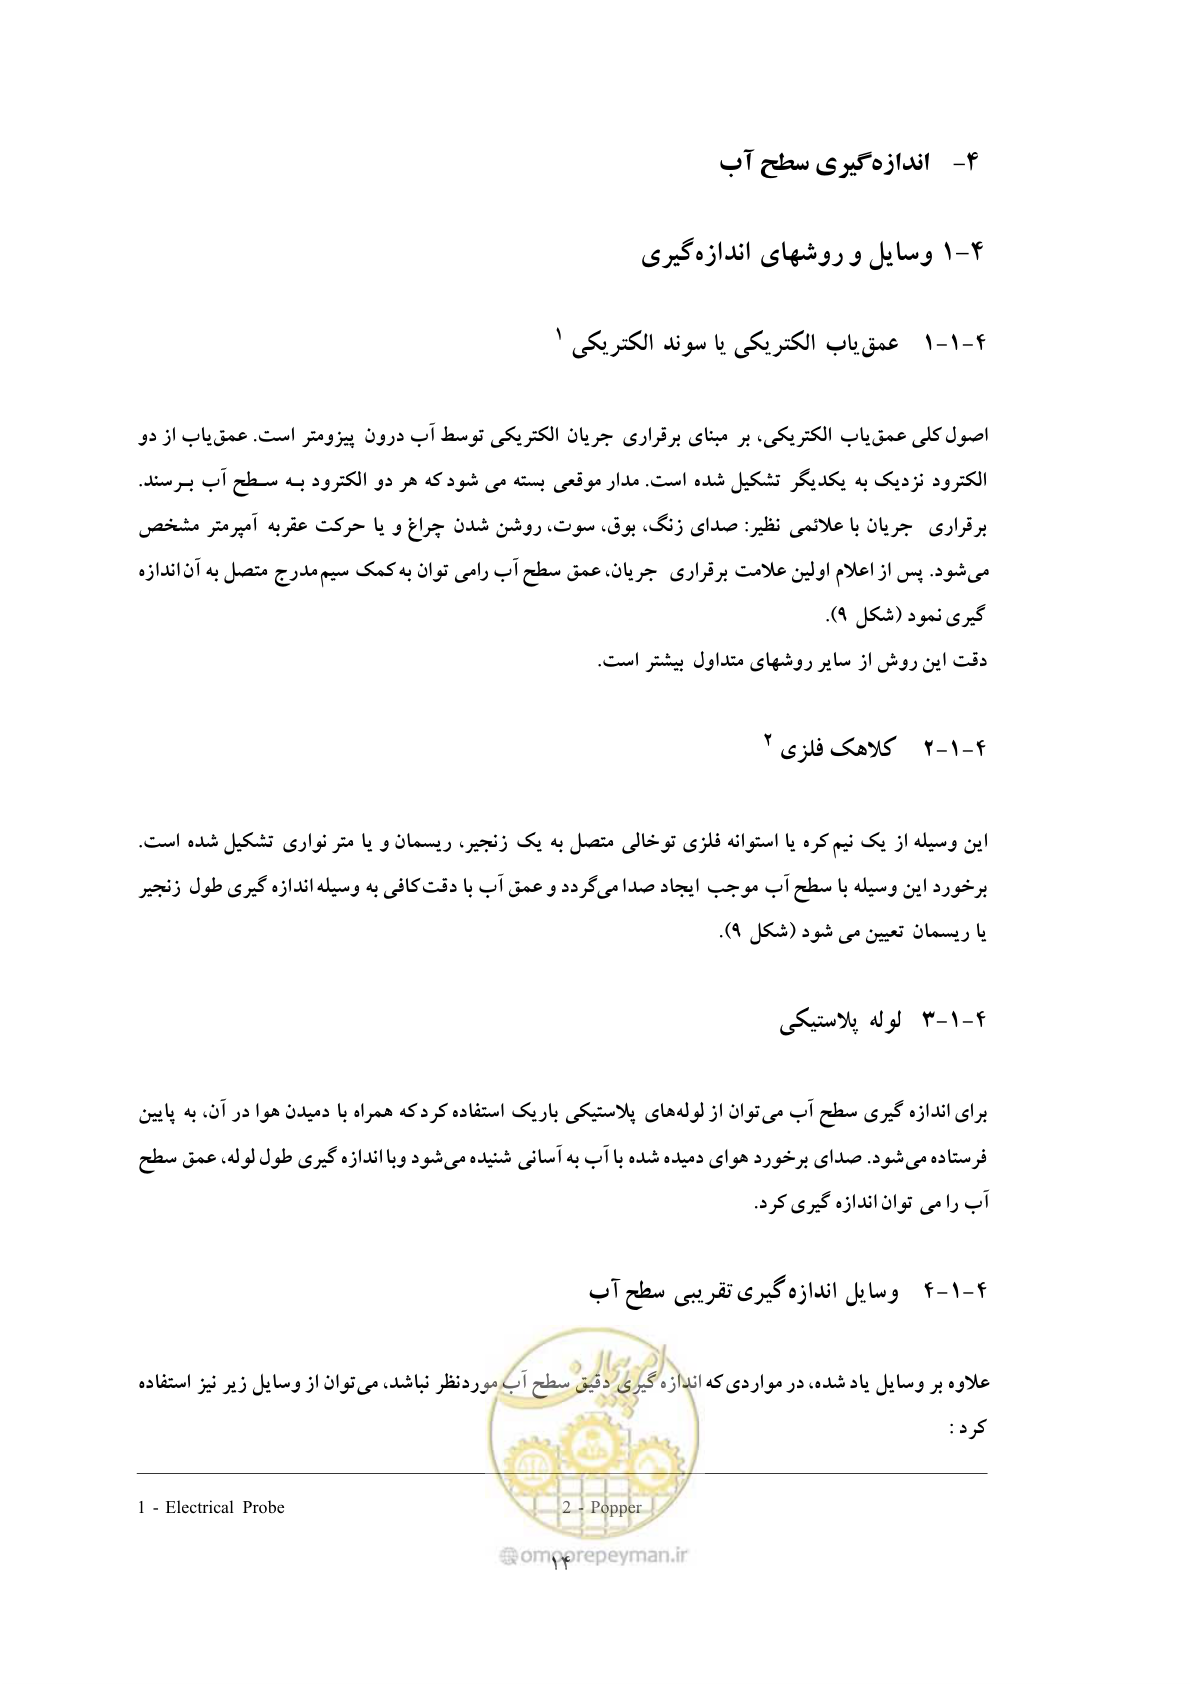 ۴- اندازه‌گیری سطح آب
۴-۱ وسایل و روشهای اندازه‌گیری
۴-۱-۱ عمق‌یاب الکتریکی یا سوند الکتریکی ۱
اصول کلی عمق‌یاب الکتریکی، بر مبنای برقراری جریان الکتریکی توسط آب درون پیزومتر است. عمق‌یاب از دو
الکترود نزدیک به یکدیگر تشکیل شده است. مدار موقعی بسته می شود که هر دو الکترود بـه سـطح آب بـرسند.
برقراری جریان با علائمی نظیر: صدای زنگ، بوق، سوت، روشن شدن چراغ و یا حرکت عقربه آمپرمتر مشخص
می‌شود. پس از اعلام اولین علامت برقراری جریان، عمق سطح آب رامی توان به کمک سیم مدرج متصل به آن اندازه
گیری نمود (شکل ۹).
دقت این روش از سایر روشهای متداول بیشتر است.
۴-۱-۲ کلاهک فلزی ۲
این وسیله از یک نیم کره یا استوانه فلزی توخالی متصل به یک زنجیر، ریسمان و یا متر نواری تشکیل شده است.
برخورد این وسیله با سطح آب موجب ایجاد صدا می‌گردد و عمق آب با دقت کافی به وسیله اندازه گیری طول زنجیر
یا ریسمان تعیین می شود (شکل ۹).
۴-۱-۳ لوله پلاستیکی
برای اندازه گیری سطح آب می‌توان از لوله‌های پلاستیکی باریک استفاده کرد که همراه با دمیدن هوا در آن، به پایین
فرستاده می‌شود. صدای برخورد هوای دمیده شده با آب به آسانی شنیده می‌شود وبا اندازه گیری طول لوله، عمق سطح
آب را می توان اندازه گیری کرد.
۴-۱-۴ وسایل اندازه‌گیری تقریبی سطح آب
علاوه بر وسایل یاد شده، در مواردی که اندازه گیری دقیق سطح آب موردنظر نباشد، می‌توان از وسایل زیر نیز استفاده
کرد :
امور پیمان
1 - Electrical Probe 2 - Popper
۱۴
@omoorepeyman.ir